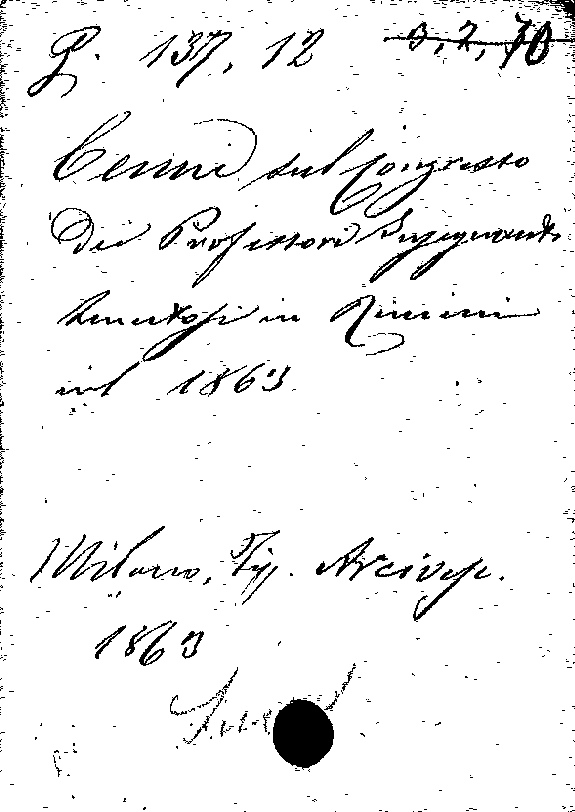 P. 137, 12 3, 2, 70
Cenni sul Congresso
Dei Professori Insegnanti
tenutosi in Rimini
nel 1863
Milano, Tip. Arcivesc.
1863